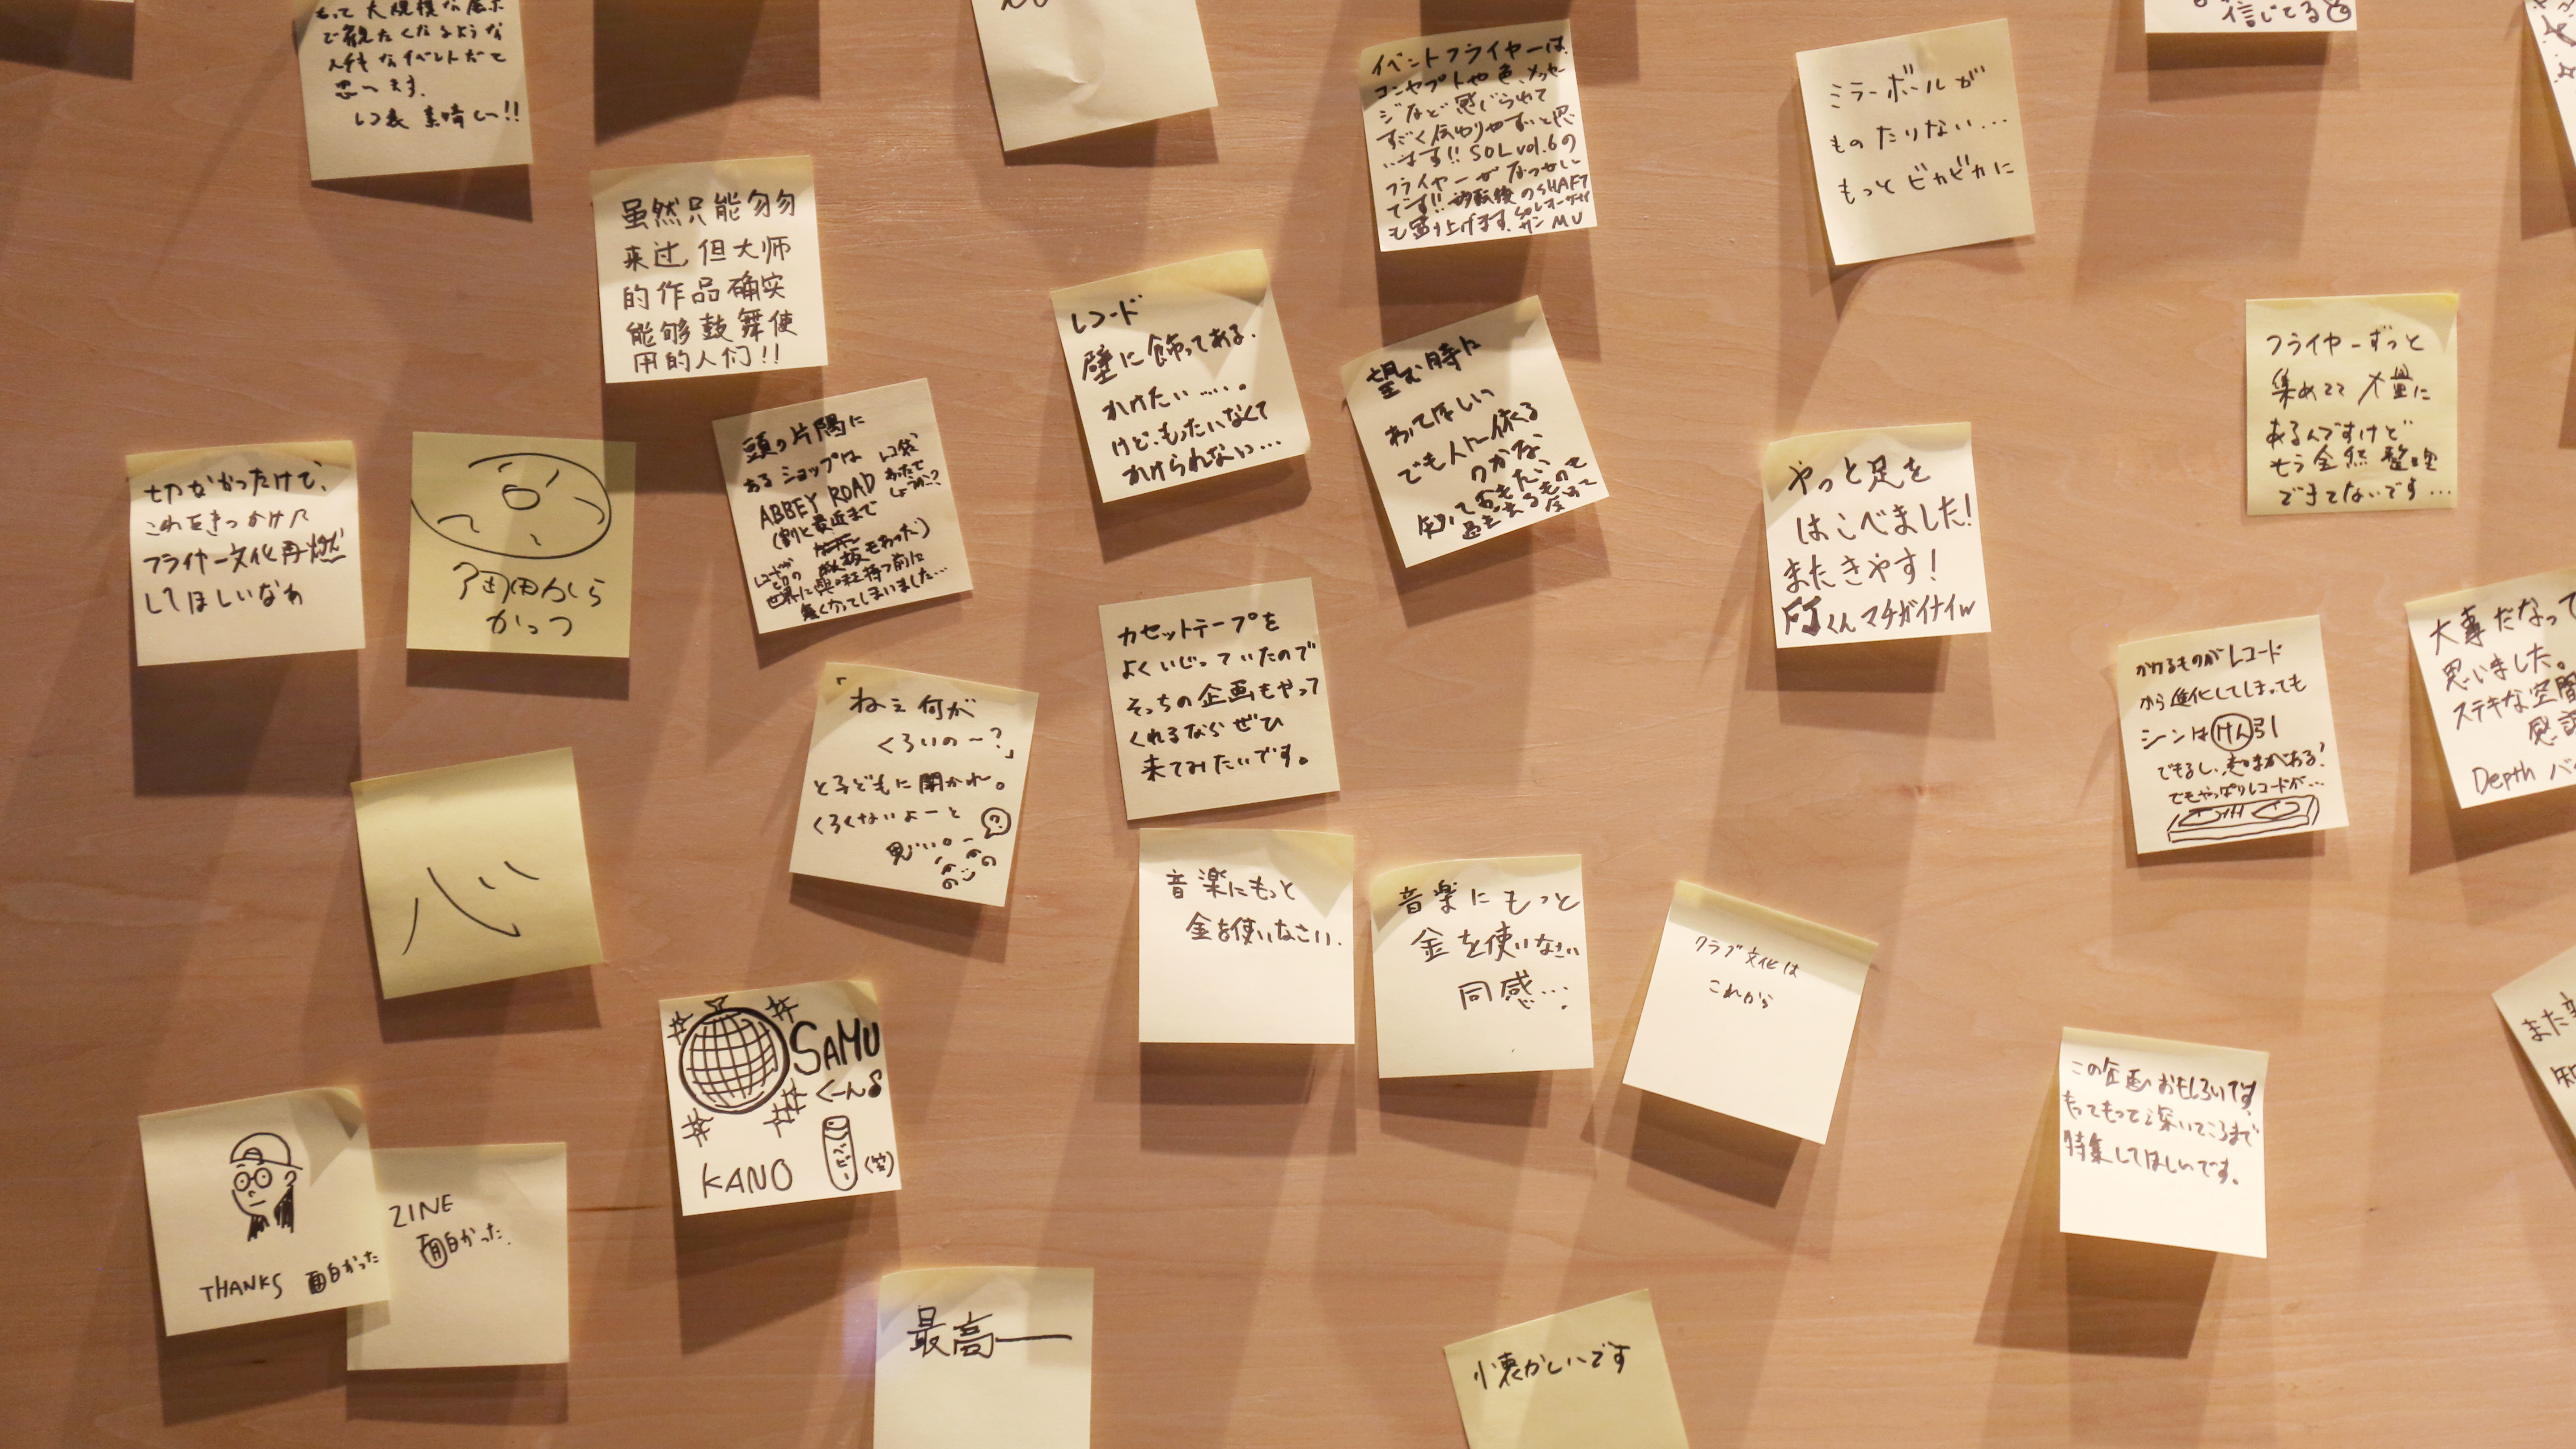 もっと大規模な展示
で観たくなるような
思います。
レコ袋 素晴しい!!
虽然只能匆匆
来过,但大师
的作品确实
能够鼓舞使
用的人们!!
イベントフライヤーは
コンセプトや色、メッセー
ジなど感じられて
すごく伝わりやすいと思
います!! SOL vol.6の
フライヤーがなつかしい
です!! 移転後のSHAFT
も盛り上げます。
ミラーボールが
ものたりない…
もっとビカビカに
信じてる
レコード
壁に飾ってある。
かけたい……。
けど、もったいなくて
かけられない…
望む時に
あってほしい
でも人に依る
のかな、
フライヤーずっと
集めてて大量に
あるんですけど
もう全然整理
できてないです…
切なかったけど、
これをきっかけに
フライヤー文化再燃
してほしいなぁ
かっつ
頭の片隅に
あるショップは
レコ袋
あたで
しょうか?
ABBEY ROAD
(割と最近まで
看板もあった)
世界に興味を持つ前に
無くなってしまいました…
やっと足を
はこべました!
またきやす!
FJくんマチガイナイw
カセットテープを
よくいじっていたので
そっちの企画もやって
くれるならぜひ
来てみたいです。
「ねぇ何が
くろいのー?」
と子どもに聞かれ。
くろくないよーと
思い。
かけるものがレコード
から進化してしまっても
シンはけん引
できるし、意味がある!
でもやっぱりレコードが…
大事だなって
思いました。
ステキな空間
Depth
心
音楽にもっと
金を使いなさい.
音楽にもっと
金を使いなさい
同感….
クラブ文化は
これから
SAMU
くーん
KANO
ラビー
(笑)
この企画おもしろいです。
もっともっと深いところまで
特集してほしいです。
また
THANKS 面白かった
ZINE
面白かった.
最高ー
懐かしいです